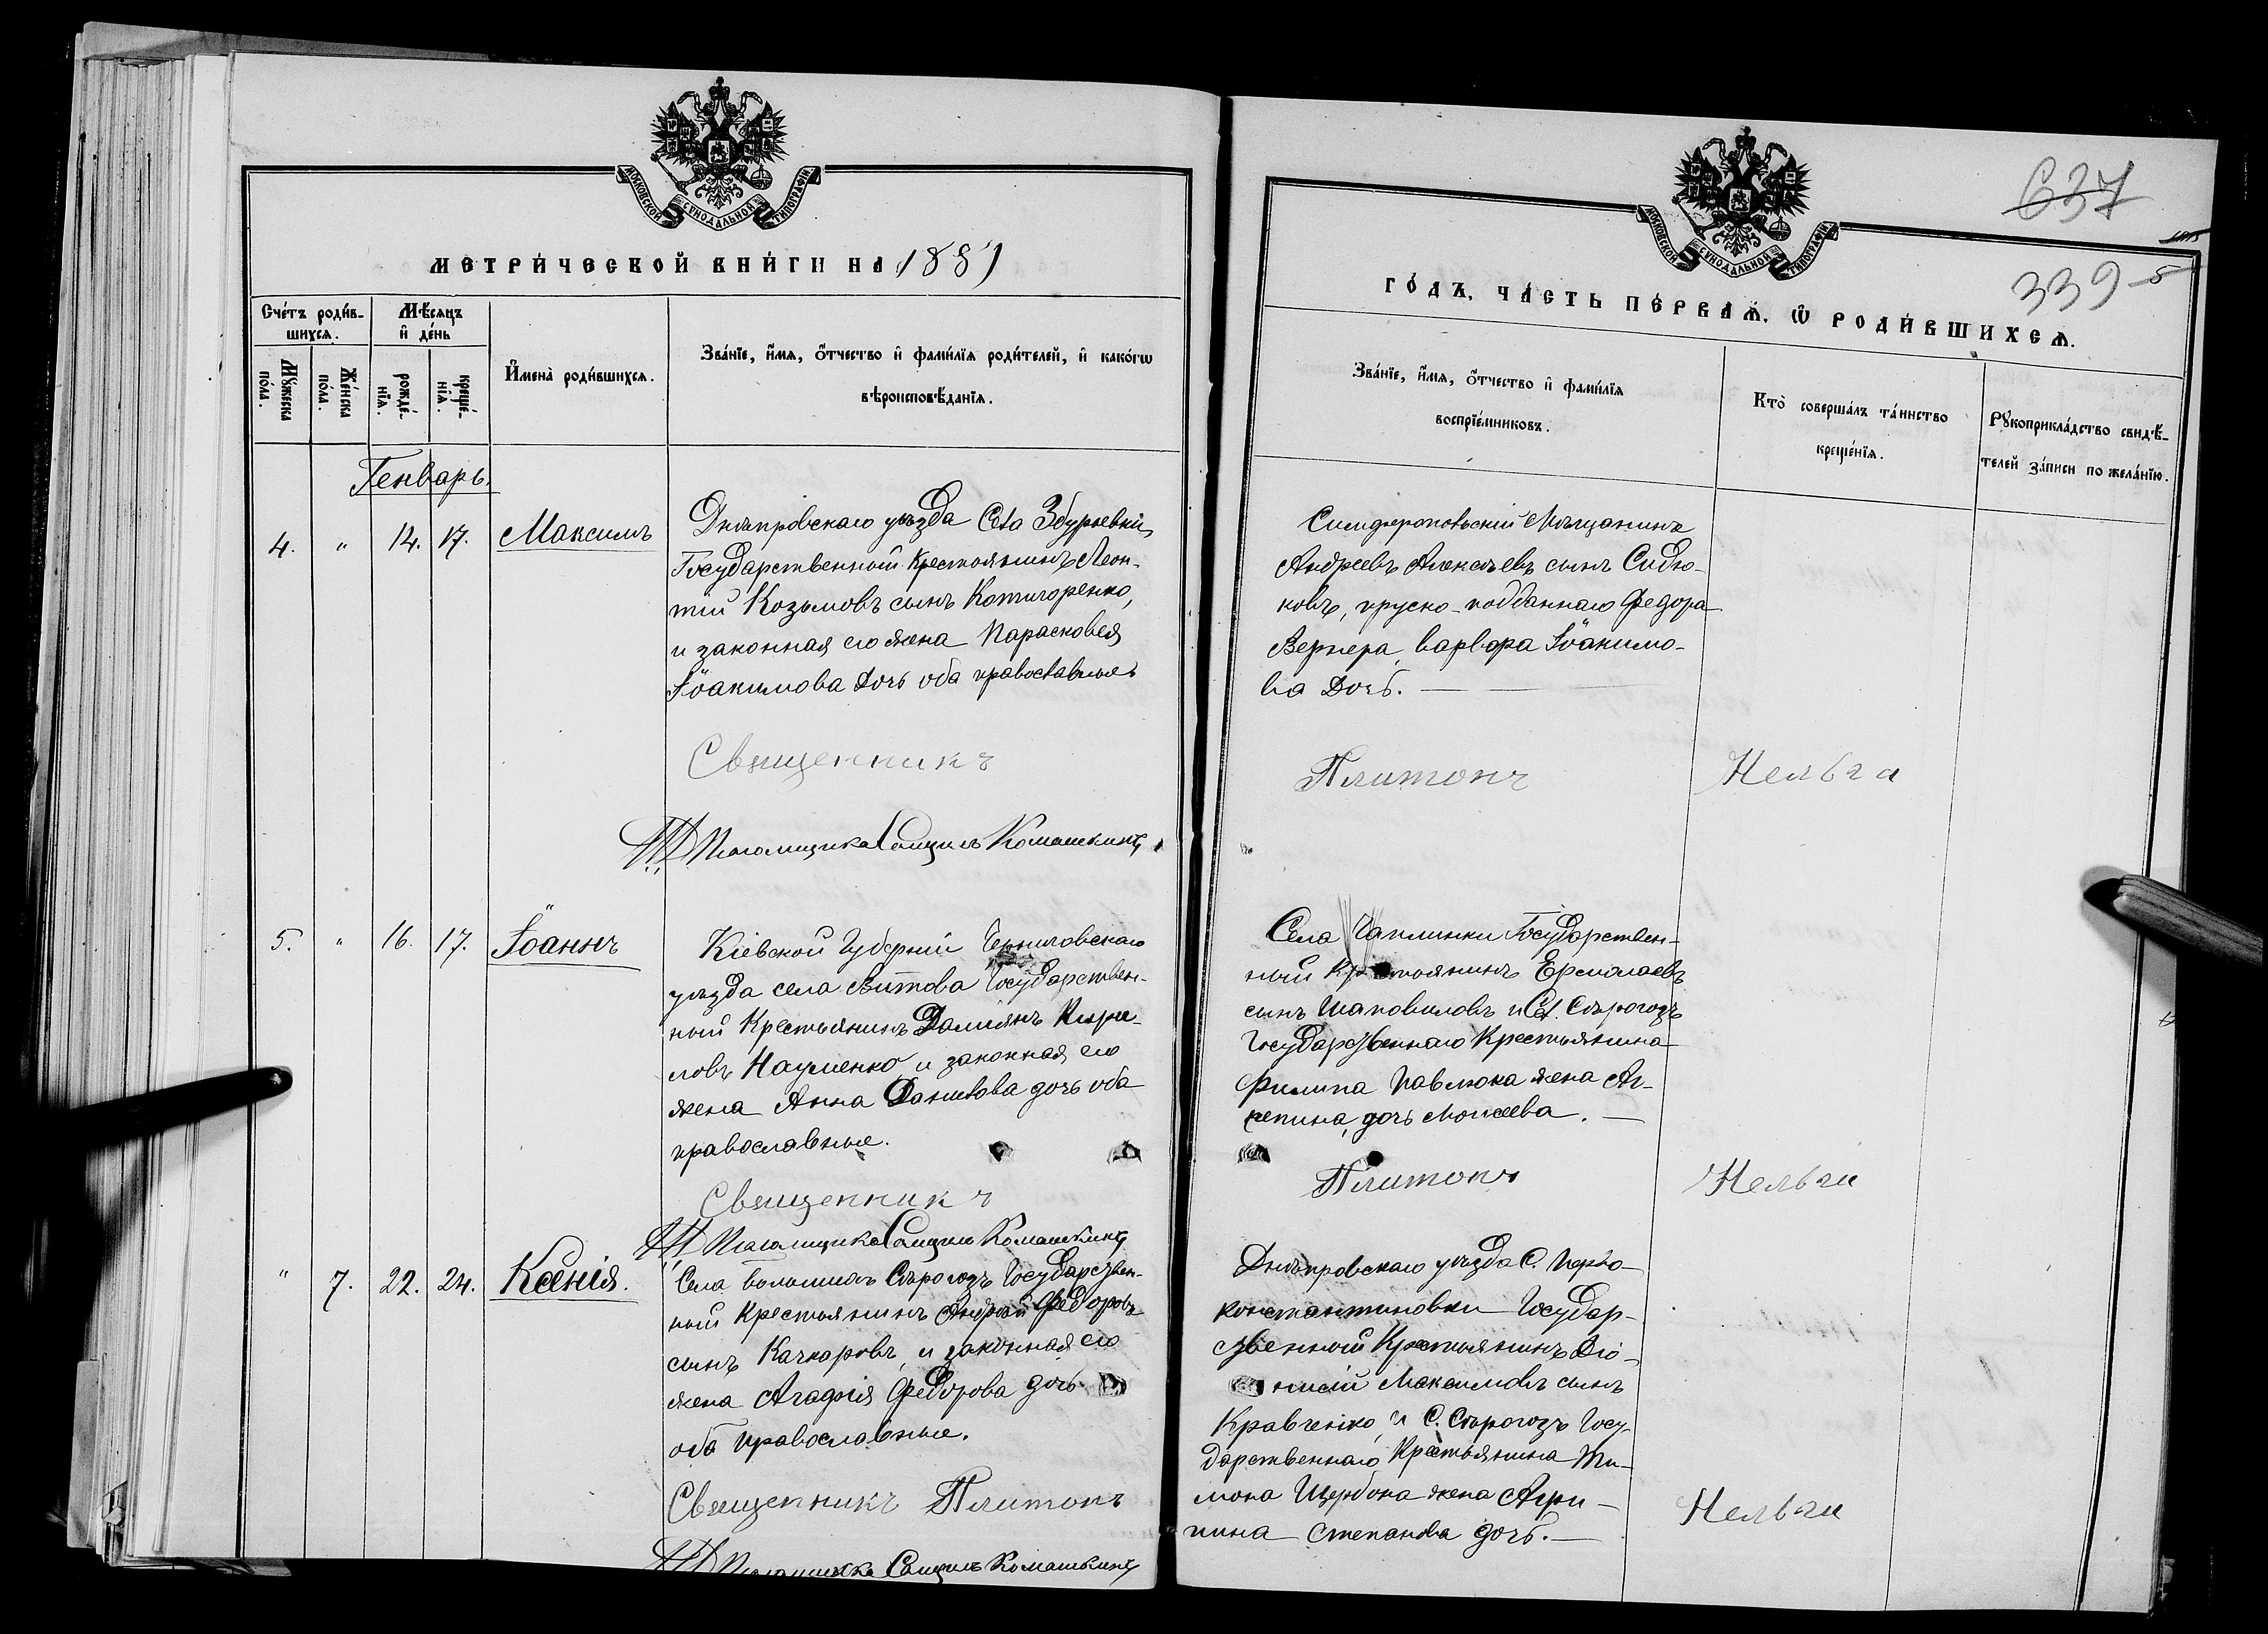 МОСКОВСКОЙ СѴНОДАЛЬНОЙ ТИПОГРАФІИ
МЕТРИ́ЧЕСКОЙ КНИ́ГИ НА 1881
Сче́тъ роди́в-
шихся.
Мꙋ́жеска
по́ла.
Же́нска
по́ла.
Мѣ́сяцъ
и҆ де́нь
рожде́-
нїя.
креще́-
нїя.
И҆мена̀ роди́вшихся.
Зва́нїе, и҆́мя, ѻ҆́тчество и҆ фами́лїя роди́телей, и҆ како́гѡ
вѣроисповѣ́данїя.
Генварь.
4. " 14. 17. Максимъ
Днѣпровскаго уѣзда Села Збурьевки,
Государственный Крестьянинъ Леон-
тий Козьмовъ сынъ Котигоренко,
и законная его жена Парасковея
Іоакимова Дочь оба православные
Священникъ
Псаломщикъ Сатунъ Комашкинъ
5. " 16. 17. Іоаннъ
Кіевской Губерніи Черниговскаго
уѣзда села Витова Государствен-
ный Крестьянинъ Даміянъ Кири-
ловъ Науменко, и законная его
жена Анна Данилова дочь оба
православные.
Священникъ
Псаломщикъ Сатунъ Комашкинъ
" 7. 22. 24. Ксенія.
Села большихъ Сѣрогозъ Государствен-
ный Крестьянинъ Андрей Федоровъ
сынъ Качкаровъ, и законная его
жена Агафія Федорова дочь
оба православные.
Священникъ Плитонъ
637
339
ГО́ДЪ, ЧА́СТЬ ПЕ́РВАЯ, Ѡ҆ РОДИ́ВШИХСЯ.
Зва́нїе, и҆́мя, ѻ҆́тчество и҆ фами́лїя
воспрїе́мниковъ.
Кто̀ соверша́лъ та́инство
креще́нїя.
Рꙋкоприкла́дство свидѣ́-
телей за́писи по жела́нїю.
Симферопольскій Мѣщанинъ
Андреевъ Алексѣевъ сынъ Сидю-
ковъ, пруско-подданнаго Федора
Вернера, варвара Іоакимо-
ва Дочь.
Плитонъ Нельга
Села Чаплинки Государствен-
ный Крестьянинъ Ермолаевъ
сынъ Шаповаловъ и Сел. Сѣрогозъ
Государственнаго Крестьянина
Филипа Павлюка жена Аг-
репина, дочь Моисеева.
Плитонъ Нельга
Днѣпровскаго уѣзда С. Перво-
константиновки Государ-
ственный Крестьянинъ Діо-
нисій Максимовъ сынъ
Кравченко, и С. Сѣрогозъ Госу-
дарственнаго Крестьянина Ти-
мона Щербона жена Агри-
пина Степанова дочь.
Нельга